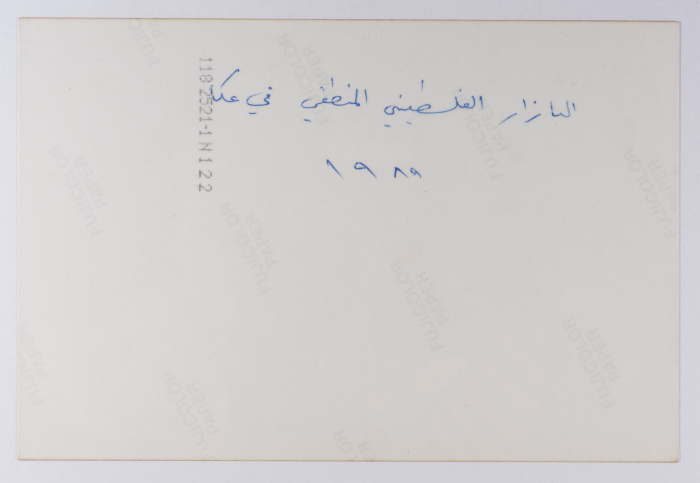 البازار الفلسطيني المنطقي في عكا
١٩٨٩
118 2521-1 N 1 2 2
FUJICOLOR PAPER
FUJICOLOR PAPER
FUJICOLOR PAPER
FUJICOLOR PAPER
FUJICOLOR PAPER
FUJICOLOR PAPER
FUJICOLOR PAPER
FUJICOLOR PAPER